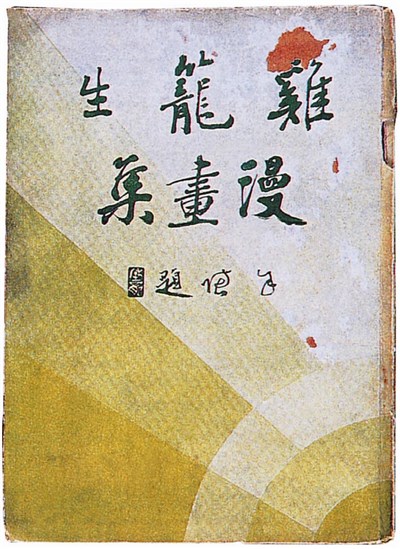 雞籠生
漫畫集
題